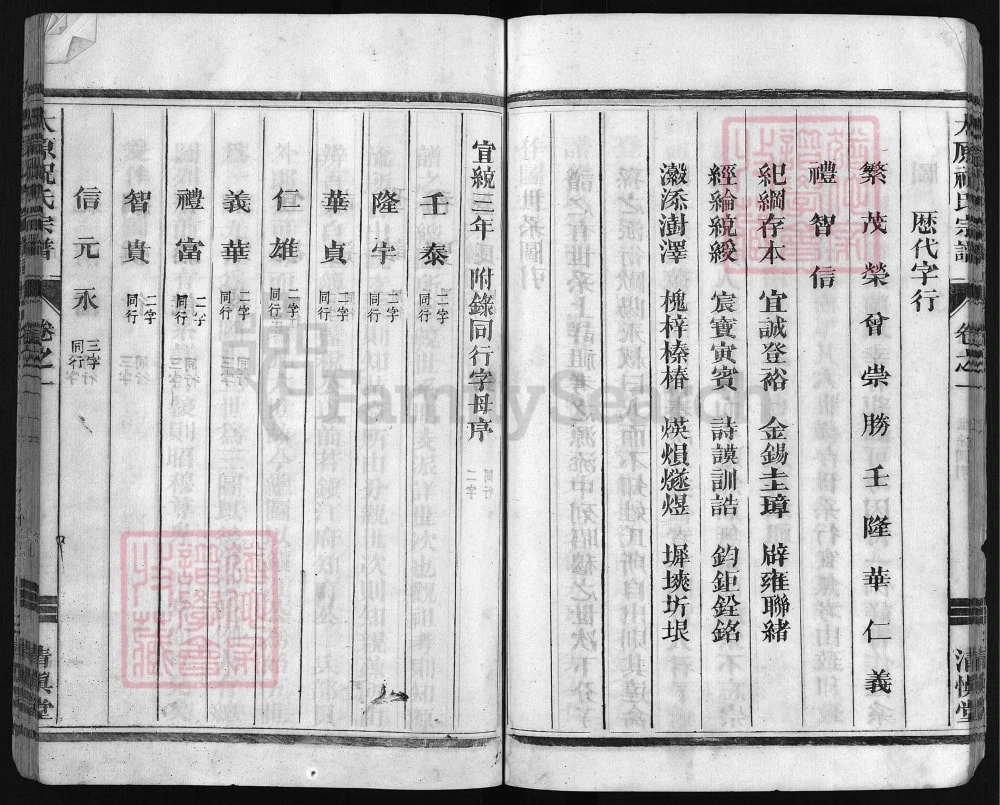 太原祝氏宗譜
卷之一
清慎堂
歷代字行
繁茂榮曾崇勝壬隆華仁義
禮智信
紀綱存本 宜誠登裕 金錫圭璋 辟雍聯緒
經綸統綬 宸寶寅賓 詩謨訓誥 鈞鉅銓銘
澂添澍澤 槐梓榛椿 煐熉燧煜 墀塽圻垠
宣統三年附錄同行字母序
壬泰 二字同行
隆宇 二字同行
華貞 二字同行
仁雄 二字同行
義華 二字同行
禮富 二字同行
智貴 二字同行
信元永 三字同行
太原祝氏宗譜
卷之一
清慎堂
FamilySearch